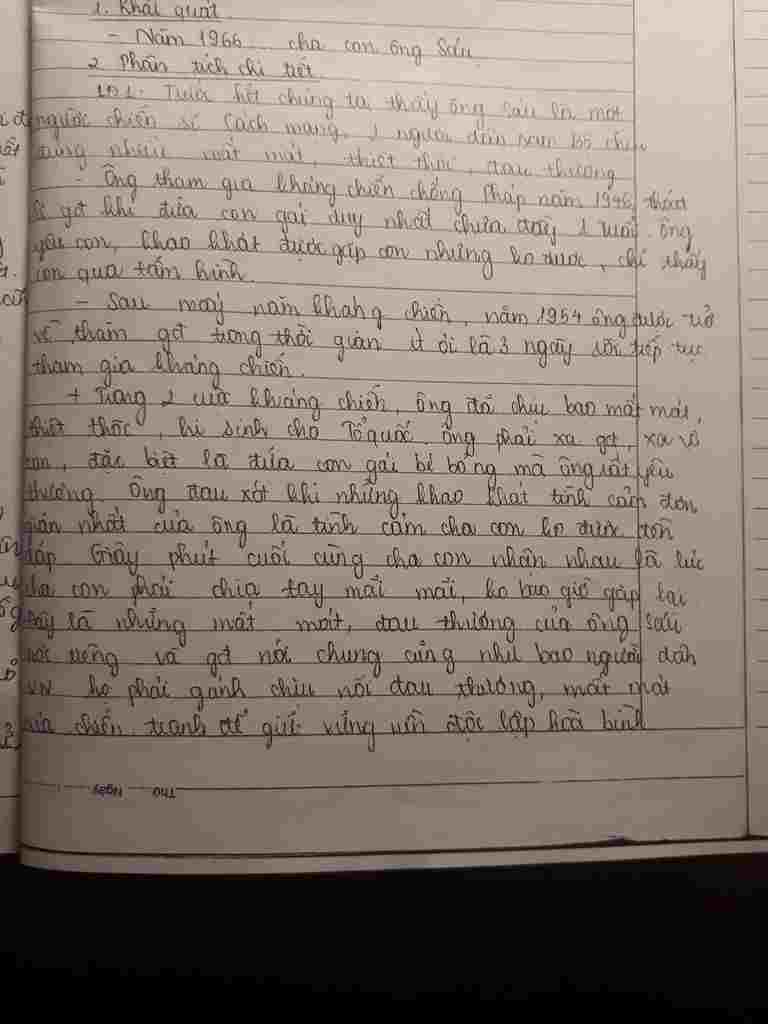 1. Khái quát.
- Năm 1966 ... cha con ông Sáu.
2. Phân tích chi tiết.
LĐ1: Trước hết chúng ta thấy ông Sáu là một
người chiến sĩ Cách mạng, 1 người dân Nam Bộ chịu
đựng nhiều mất mát, thiệt thòi, đau thương
- Ông tham gia kháng chiến chống Pháp năm 1946,
gđ khi đứa con gái duy nhất chưa đầy 1 tuổi. ông
yêu con, khao khát được gặp con nhưng ko được, chỉ thấy
con qua tấm hình.
- Sau mấy năm kháng chiến, năm 1954 ông được trở
về thăm gđ trong thời gian ít ỏi là 3 ngày rồi tiếp tục
tham gia kháng chiến.
+ Trong 2 cuộc kháng chiến, ông đã chịu bao mất mát,
thiệt thòi, hi sinh cho Tổ quốc. ông phải xa gđ, xa vợ
con, đặc biệt là đứa con gái bé bỏng mà ông rất yêu
thương. Ông đau xót khi những khao khát tình cảm đơn
giản nhất của ông là tình cảm cha con ko được đón
đáp. Giây phút cuối cùng cha con nhận nhau là lúc
cha con phải chia tay mãi mãi, ko bao giờ gặp lại
Đây là những mất mát, đau thương của ông Sáu
nói riêng và gđ nói chung cũng như bao người dân
VN họ phải gánh chịu nỗi đau thương, mất mát
của chiến tranh để giữ vững nền độc lập hoà bình
Thứ Ngày